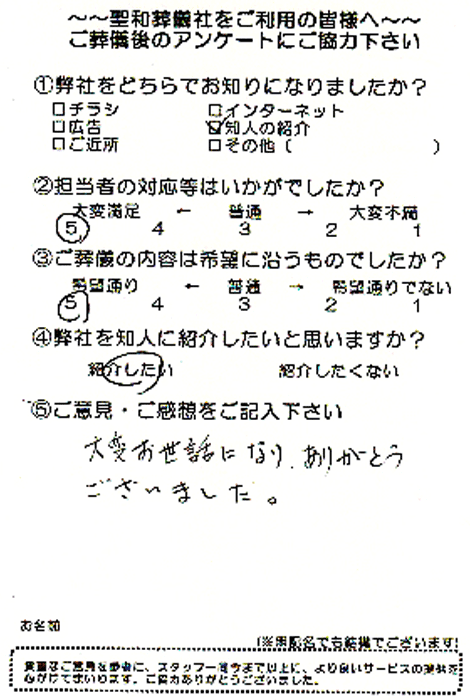 ～～聖和葬儀社をご利用の皆様へ～～
ご葬儀後のアンケートにご協力下さい
①弊社をどちらでお知りになりましたか？
□チラシ □インターネット
□広告 ☑知人の紹介
□ご近所 □その他（ ）
②担当者の対応等はいかがでしたか？
大変満足 ← 普通 → 大変不満
5 4 3 2 1
③ご葬儀の内容は希望に沿うものでしたか？
希望通り ← 普通 → 希望通りでない
5 4 3 2 1
④弊社を知人に紹介したいと思いますか？
紹介したい 紹介したくない
⑤ご意見・ご感想をご記入下さい
大変お世話になり、ありがとう
ございました。
お名前
(※無記名でも結構でございます)
貴重なご意見を参考に、スタッフ一同今まで以上に、より良いサービスの提供を
心がけてまいります。ご協力ありがとうございました。